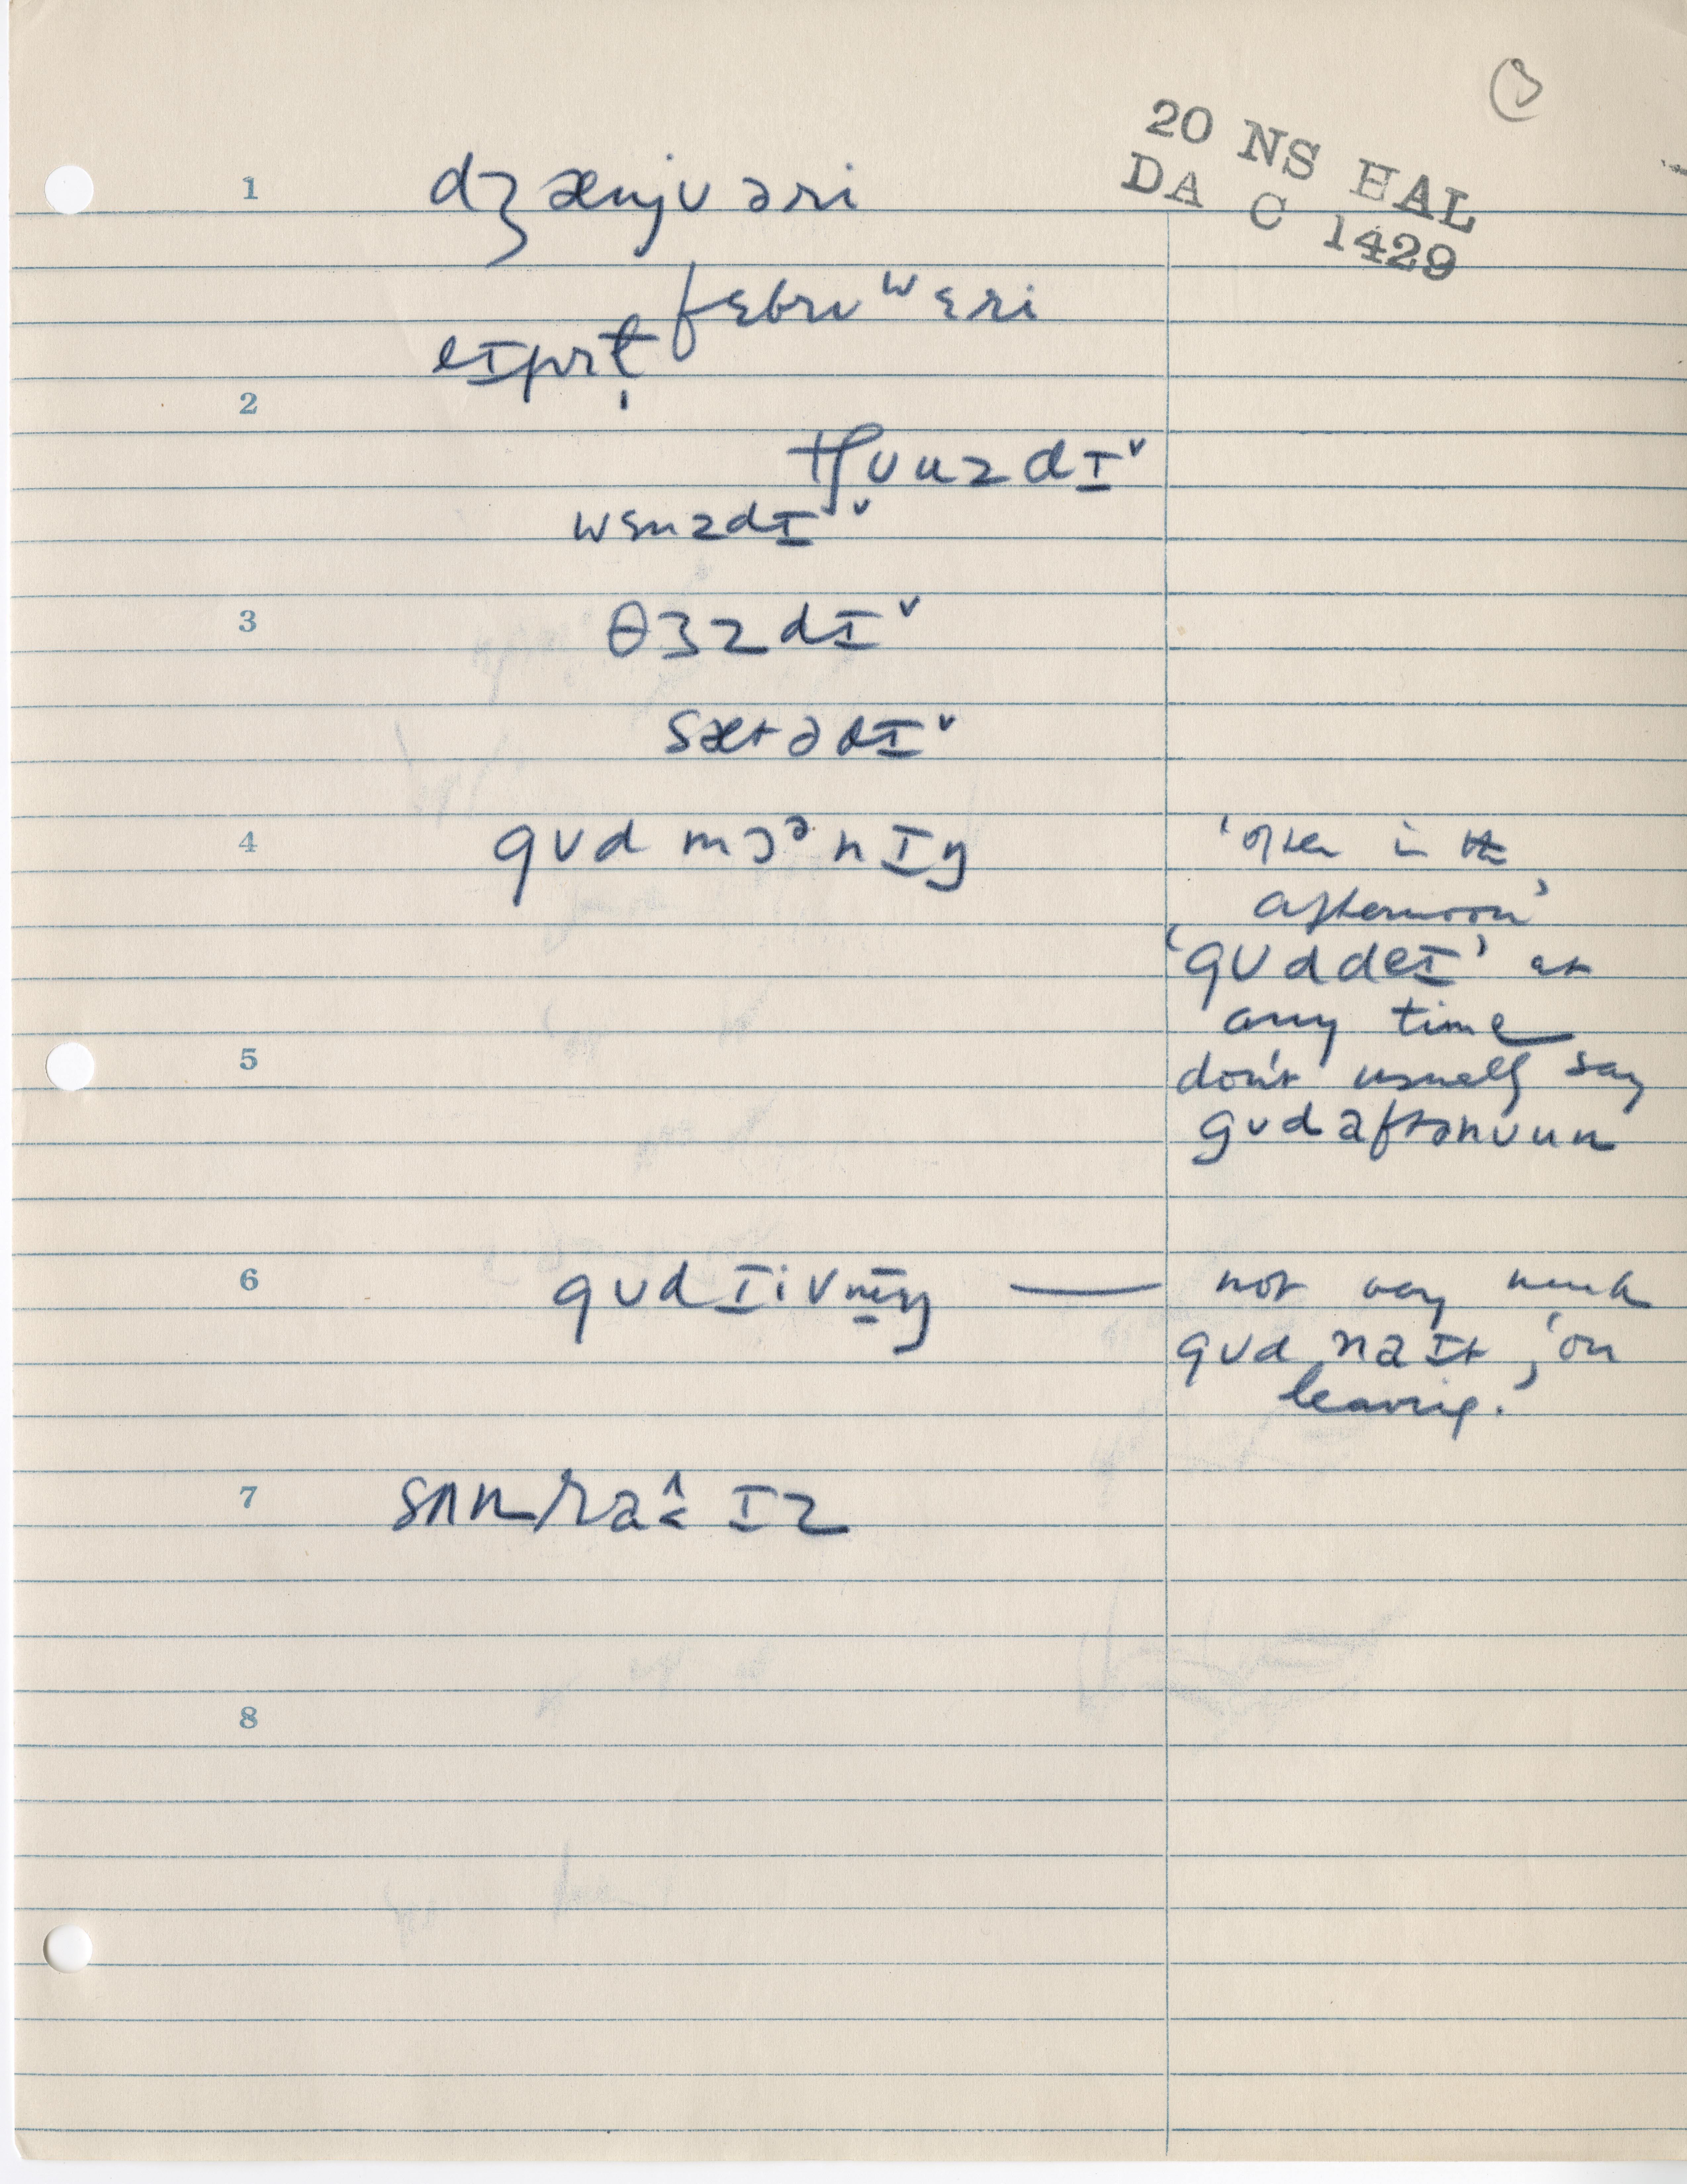 3
20 NS HAL
DA C 1429
1 dʒænjʊəri
fɛbrʊʷɛri
eɪprɪ̣l
2
tʃʊuzdɪ˅
wɛnzdɪ˅
3 θɜzdɪ˅
sætədɪ˅
4 gʊd mɔᵊnɪŋ
'often in the
afternoon'
'gʊd deɪ' at
any time
5 don't usually say
gʊd aftənʊun
6 gʊd ɪivnɪŋ — not very much
gʊd naɪt, 'on
leaving.'
7 sʌnraɪz
8